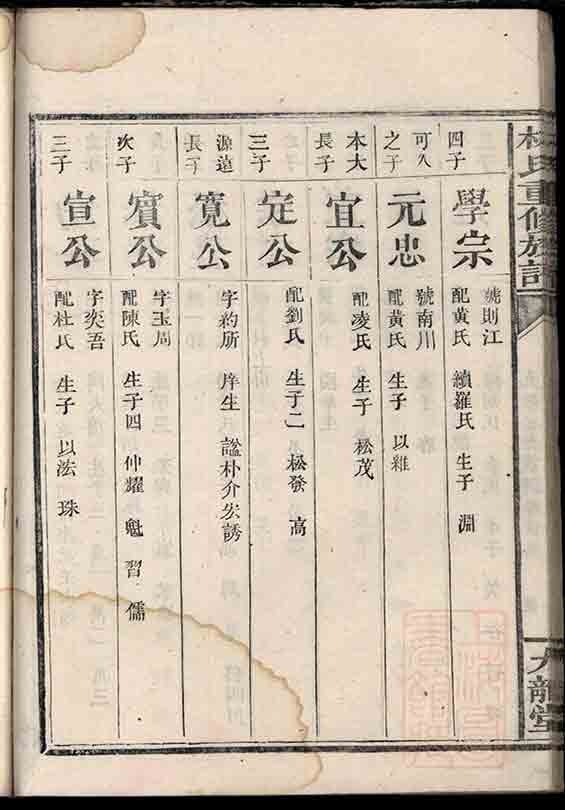 氏重修族譜
四子
學宗
號則江
配黃氏 續羅氏 生子 淵
可久
之子
元忠
號南川
配黃氏 生子 以雜
本大
長子
宜公
配凌氏 生子 松茂
三子
定公
配劉氏 生子二 松發 高
源遠
長子
寬公
字約所 庠生 諡朴介
次子
賓公
字玉周
配陳氏 生子四 仲耀 魁 習 儒
三子
宣公
字奕吾
配杜氏 生子 以法 珠
龍堂